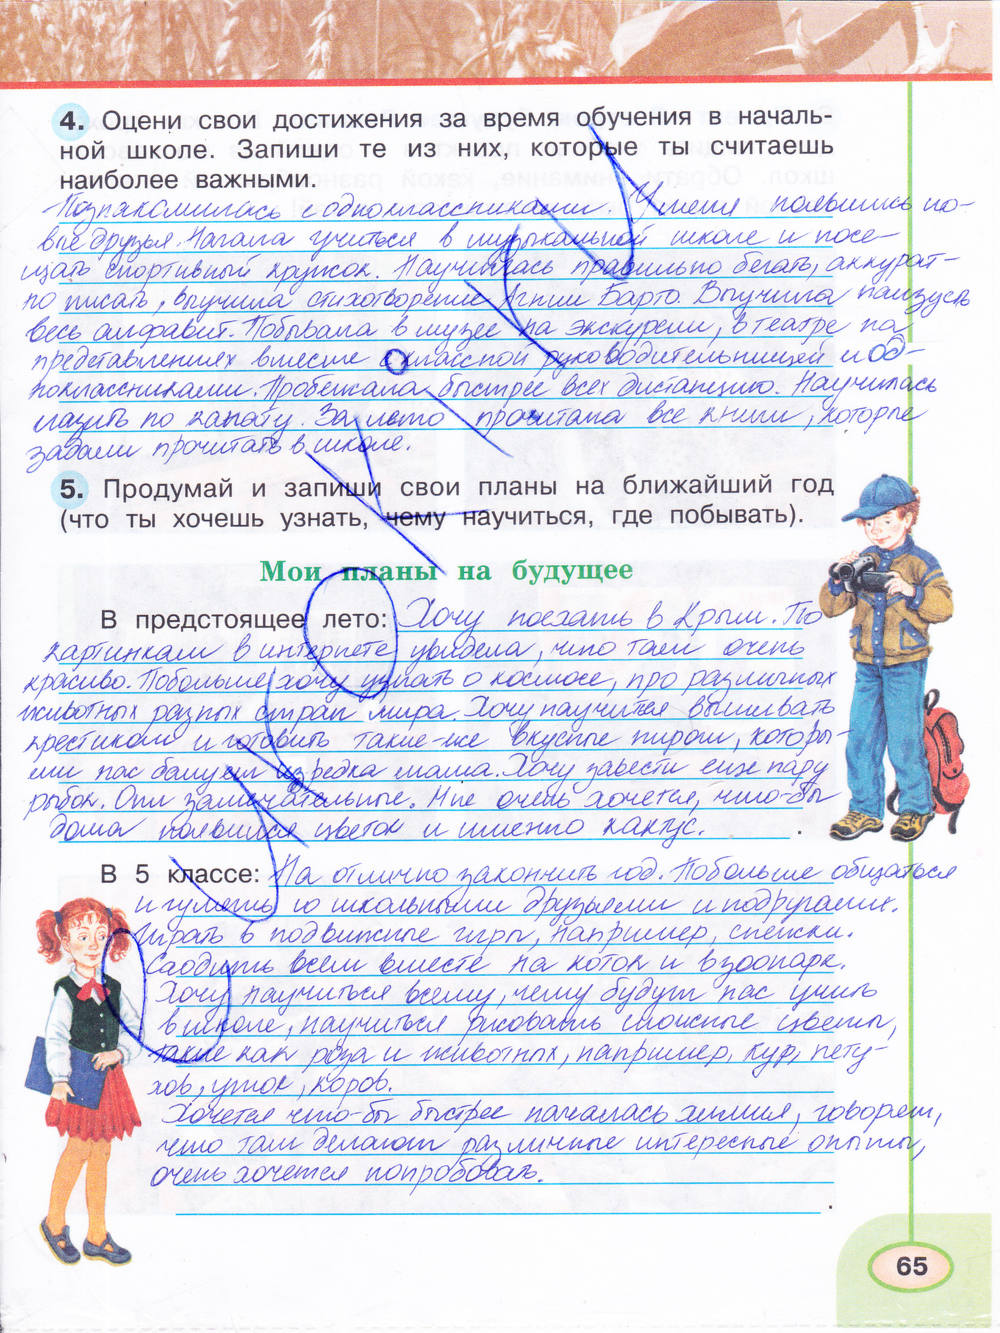 4. Оцени свои достижения за время обучения в началь-
ной школе. Запиши те из них, которые ты считаешь
наиболее важными.
Познакомилась с одноклассниками. У меня появились но-
вые друзья. Начала учиться в музыкальной школе и посе-
щать спортивный кружок. Научилась правильно бегать, аккурат-
но писать, выучила стихотворение Агнии Барто. Выучила наизусть
весь алфавит. Побывала в музее на экскурсии, в театре на
представлениях вместе с классной руководительницей и од-
ноклассниками. Пробежала быстрее всех дистанцию. Научилась
лазить по канату. За лето прочитала все книги, которые
задали прочитать в школе.
5. Продумай и запиши свои планы на ближайший год
(что ты хочешь узнать, чему научиться, где побывать).
Мои планы на будущее
В предстоящее лето: Хочу поехать в Крым. По
картинкам в интернете увидела, что там очень
красиво. Побольше хочу узнать о космосе, про различных
животных разных стран мира. Хочу научится вышивать
крестиком и готовить такие-же вкусные пироги, которы-
ми нас балует изредка мама. Хочу завести еще пару
рыбок. Они замечательные. Мне очень хочется, что-бы
дома появился цветок и именно кактус.
В 5 классе: На отлично закончить год. Побольше общаться
и гулять со школьными друзьями и подругами.
Играть в подвижные игры, например, снежки.
Сходить всем вместе на каток и в зоопарк.
Хочу научиться всему, чему будут нас учить
в школе, научиться рисовать сложные цветы,
такие как роза и животных, например, кур, пету-
хов, уток, коров.
Хочется что-бы быстрее началась химия, говорят,
что там делают различные интересные опыты,
очень хочется попробовать.
65